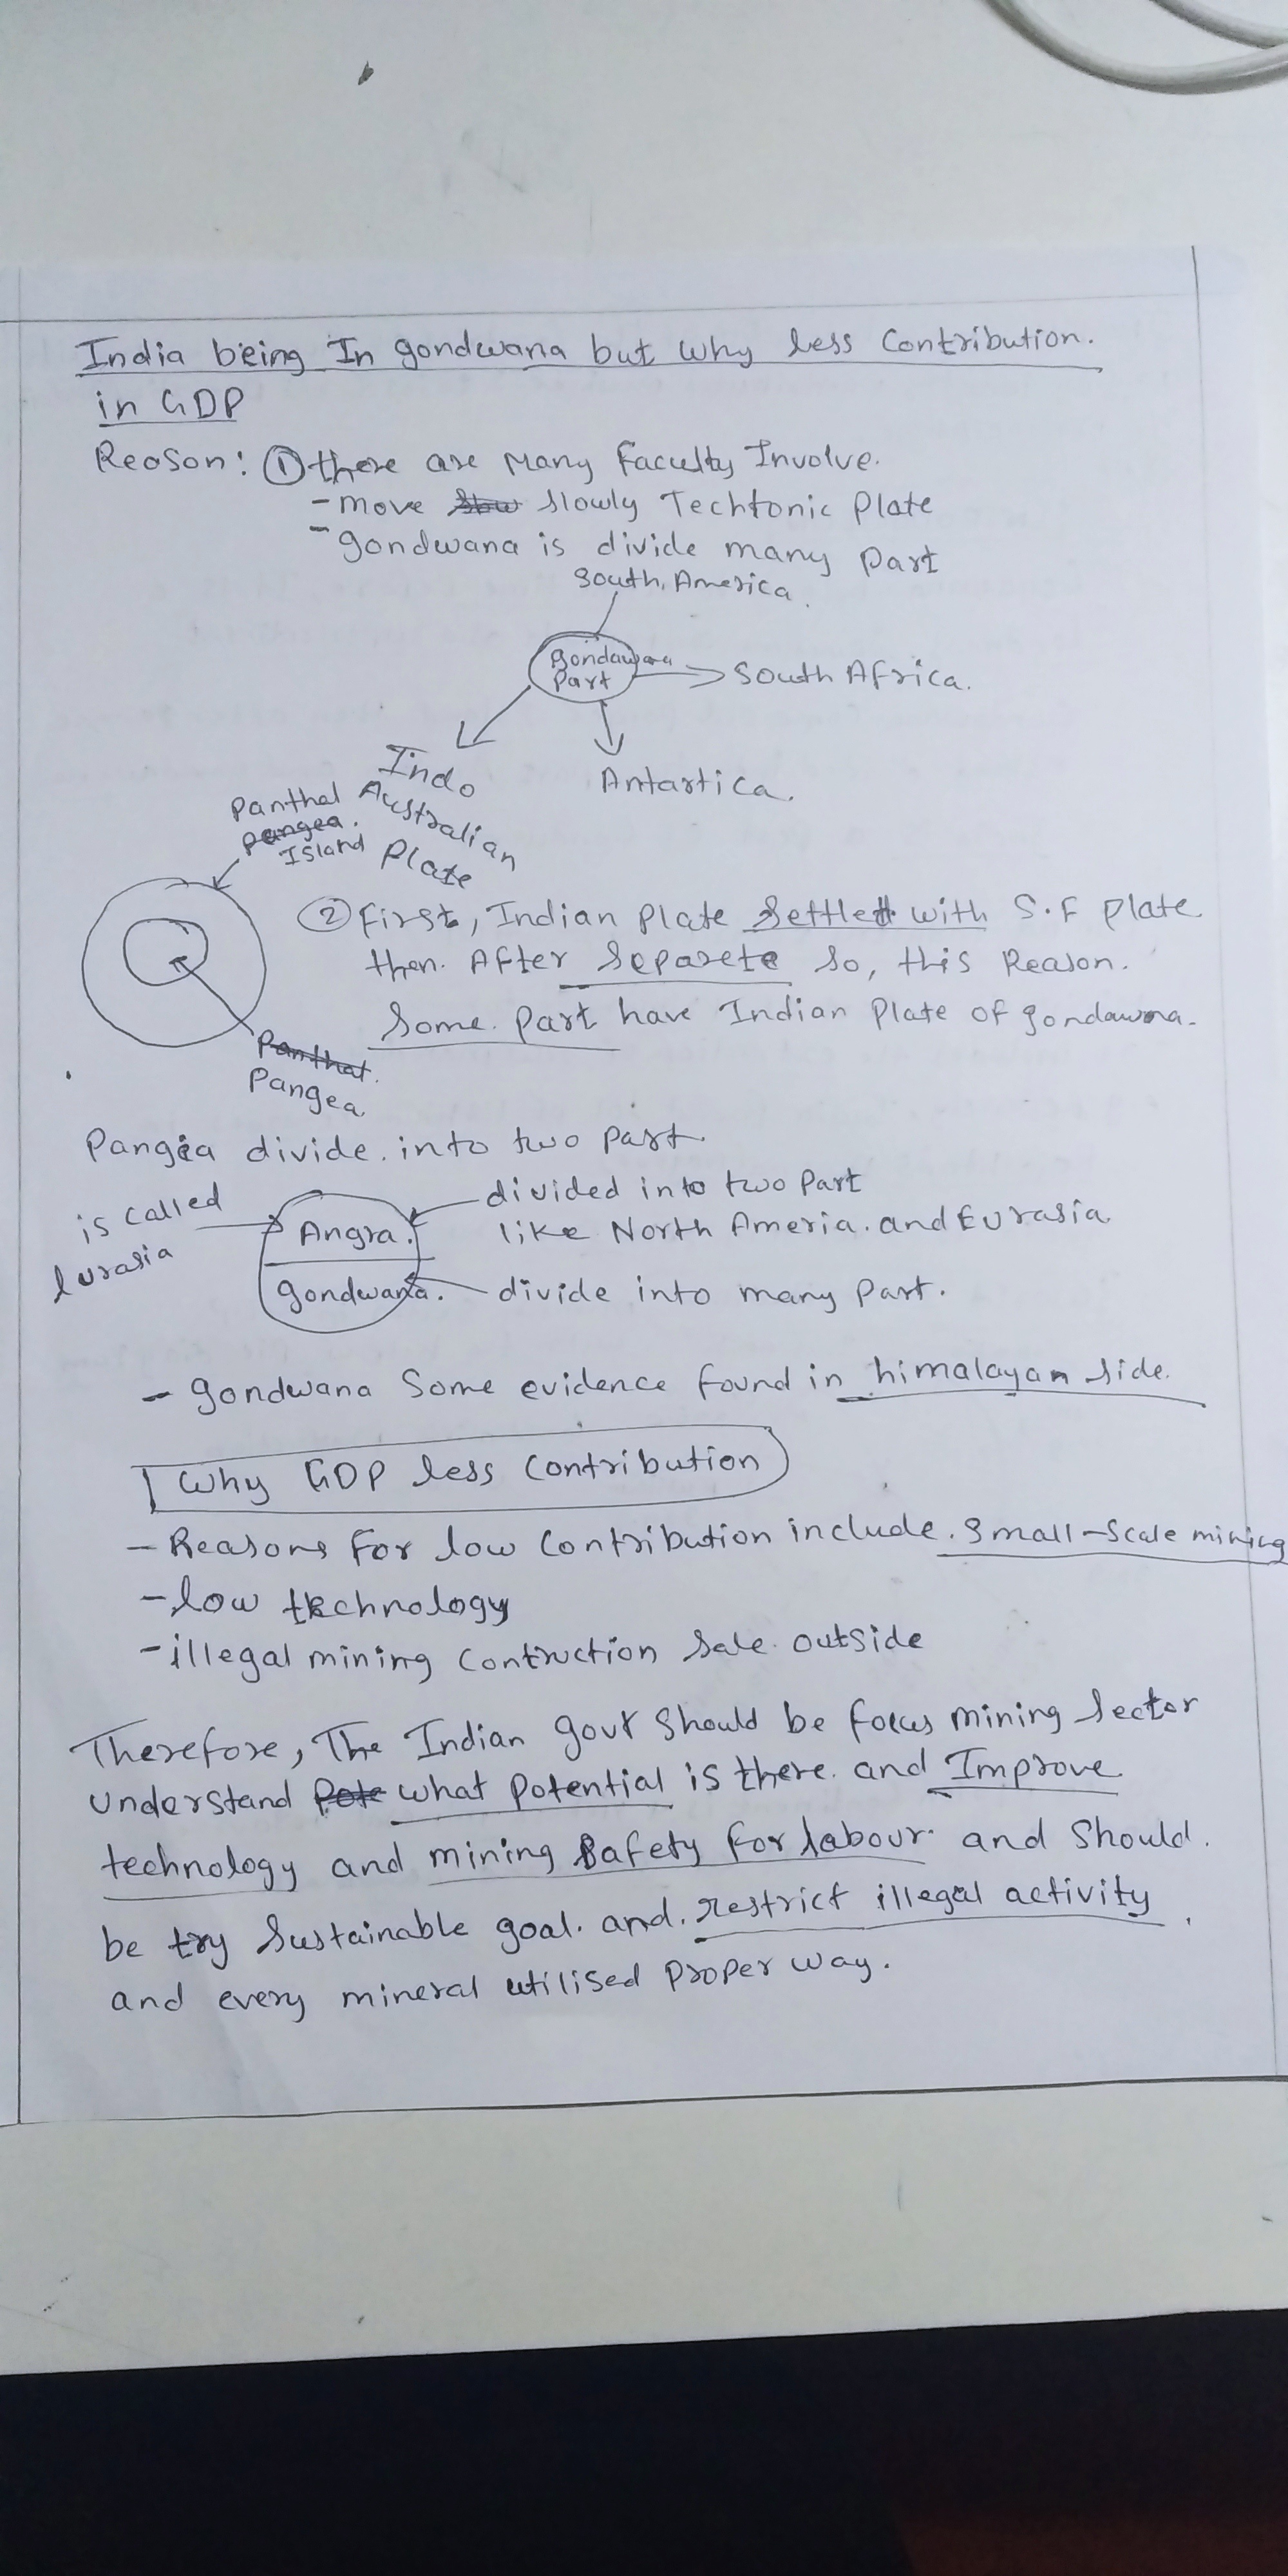 India being In gondwana but why less Contribution.
in GDP
Reoson: ① there are Many Faculty Involve.
- move slowly Techtonic Plate
- gondwana is divide many Part
South, America.
gondawana
Part
South Africa.
Antartica.
Indo
Australian
Plate
Panthal
pangea.
Island
② First, Indian Plate Settled with S.F Plate
then. After Separete So, this Reason.
Some. Part have Indian Plate of gondawana.
Panthat.
Pangea
Pangia divide. into two part.
is called
lurasia
Angra.
gondwana.
divided into two Part
like North Ameria. and Eurasia
divide into many Part.
- gondwana Some evidence found in himalayan side.
Why GDP less Contribution
- Reasons For low Contribution include. Small-Scale mining
- low technology
- illegal mining Contruction Sale. outside
Therefore, The Indian govt Should be focus mining Sector
Understand Pote what Potential is there. and Improve
technology and mining Safety For labour. and Should.
be try Sustainable goal. and. restrict illegal activity,
and every mineral utilised Proper way.